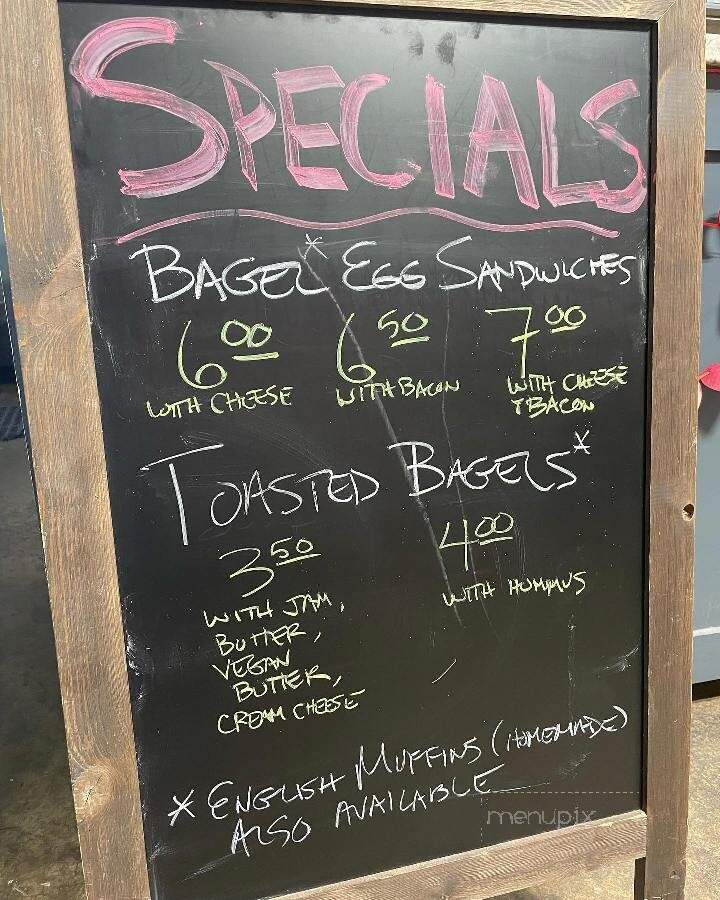 SPECIALS
BAGEL* EGG SANDWICHES
6.00 6.50 7.00
WITH CHEESE WITH BACON WITH CHEESE
+ BACON
TOASTED BAGELS*
3.50 4.00
WITH JAM, WITH HUMMUS
BUTTER,
VEGAN
BUTTER,
CREAM CHEESE
* ENGLISH MUFFINS (HOMEMADE)
ALSO AVAILABLE
menupix